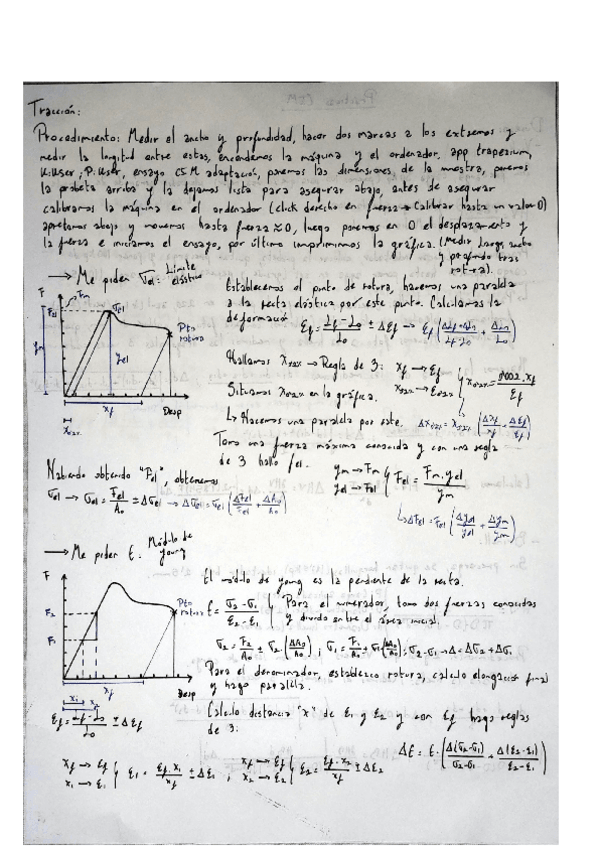 Tracción:
Procedimiento: Medir el ancho y profundidad, hacer dos marcas a los extremos y
medir la longitud entre estas, encendemos la máquina y el ordenador, app trapezium,
ensayo CSM adaptación, ponemos las dimensiones de la muestra, ponemos
la probeta arriba y la dejamos lista para asegurar abajo, antes de asegurar
calibramos la máquina en el ordenador (click derecho en fuerza → Calibrar hasta un valor 0)
apretamos abajo y movemos hasta fuerza ≈ 0, luego ponemos en 0 el desplazamiento y
la fuerza e iniciamos el ensayo, por último imprimimos la gráfica. (Medir largo, ancho
y profundo tras
rotura).
→ Me piden σel: Límite
elástico
F
Fm
Fel
σel
Pto
rotura
ym
yel
xf
Desp
Establecemos el punto de rotura, hacemos una paralela
a la recta elástica por este punto. Calculamos la
deformación Ef = Lf - L0 / L0 ± ΔEf →
Hallamos → Regla de 3: xf → Ef
Situamos en la gráfica.
↳ Hacemos una paralela por este.
Tomo una fuerza máxima conocida y con una regla
de 3 hallo fel.
ym → Fm
yel → Fel
Fel = Fm · yel / ym
↳ ΔFel = Fel (Δyel / yel + Δym / ym)
Habiendo obtenido "Fel", obtenemos
σel → σel = Fel / A0 ± Δσel → Δσel = σel (ΔFel / Fel + ΔA0 / A0)
→ Me piden E. Módulo de
young
F
F2
F1
Pto
rotura
x1
xf
Desp
Ef = Lf - L0 / L0 ± ΔEf
El módulo de young es la pendiente de la recta.
E = σ2 - σ1 / E2 - E1
Para el numerador, tomo dos fuerzas conocidas
y divido entre el área inicial.
σ2 = F2 / A0 ± σ2 · (ΔA0 / A0) ; σ1 = F1 / A0 ± σ1 (ΔA0 / A0) = σ2 - σ1 → Δ = Δσ2 + Δσ1
Para el denominador, establezco rotura, calculo elongación final
y hago paralela.
Calculo distancia "x" de E1 y E2 y con Ef hago reglas
de 3:
ΔE = E · (Δ(σ2-σ1) / σ2-σ1 + Δ(E2-E1) / E2-E1)
xf → Ef
x1 → E1
E1 = Ef · x1 / xf ± ΔE1 ;
xf → Ef
x2 → E2
E2 = Ef · x2 / xf ± ΔE2